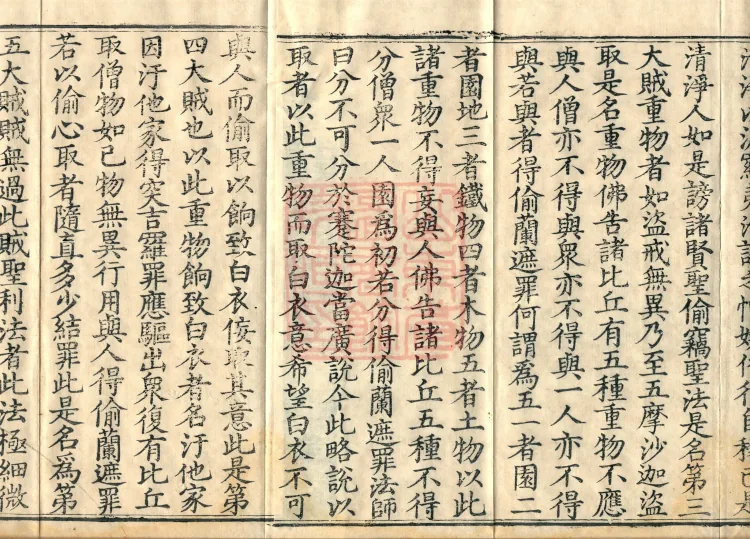 清淨人如是謗諸賢聖偷竊聖法是名第三
大賊重物者如盜戒無異乃至五摩沙迦盜
取是名重物佛告諸比丘有五種重物不應
與人僧亦不得與衆亦不得與一人亦不得
與若與者得偷蘭遮罪何謂爲五一者園二
者園地三者鐵物四者木物五者土物以此
諸重物不得妄與人佛告諸比丘五種不得
分僧衆一人園爲初若分得偷蘭遮罪法師
曰分不可分於蹇陀迦當廣說今此略說以
取者以此重物而取白衣意希望白衣不可
與人而偷取以餉致白衣佞取其意此是第
四大賊也以此重物餉致白衣者名汙他家
因汙他家得突吉羅罪應驅出衆復有比丘
取僧物如己物無異行用與人得偷蘭遮罪
若以偷心取者隨直多少結罪此是名爲第
五大賊賊無過此賊聖利法者此法極細微